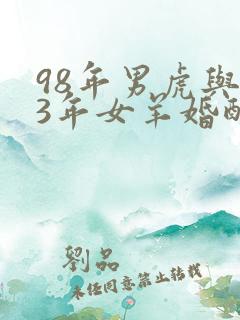 98年男虎與
3年女羊婚配
劉品
未经同意禁止转载